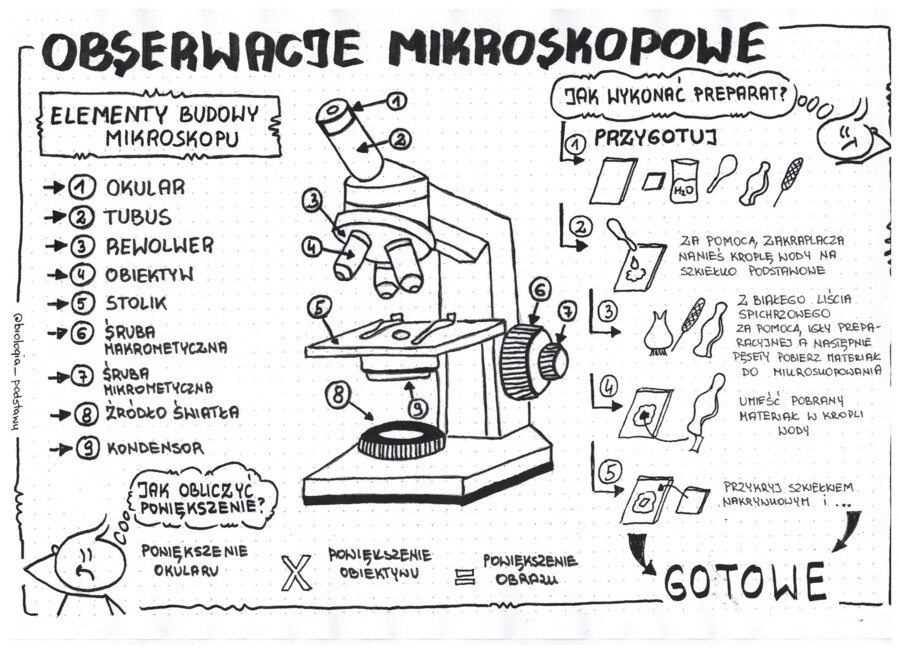 OBSERWACJE MIKROSKOPOWE
ELEMENTY BUDOWY
MIKROSKOPU
1 OKULAR
2 TUBUS
3 REWOLWER
4 OBIEKTYW
5 STOLIK
6 ŚRUBA
MAKROMETYCZNA
7 ŚRUBA
MIKROMETYCZNA
8 ŹRÓDŁO ŚWIATŁA
9 KONDENSOR
@biologia_podstawy
1
2
3
4
5
6
7
8
9
JAK WYKONAĆ PREPARAT?
1 PRZYGOTUJ
H2O
2
ZA POMOCĄ ZAKRAPLACZA
NANIEŚ KROPLĘ WODY NA
SZKIEŁKO PODSTAWOWE
3
Z BIAŁEGO LIŚCIA
SPICHRZOWEGO
ZA POMOCĄ IGŁY PREPA-
RACYJNEJ A NASTĘPNIE
PĘSETY POBIERZ MATERIAŁ
DO MIKROSKOPOWANIA
4
UMIEŚĆ POBRANY
MATERIAŁ W KROPLI
WODY
5
PRZYKRYJ SZKIEŁKIEM
NAKRYWKOWYM i ...
GOTOWE
JAK OBLICZYĆ
POWIĘKSZENIE?
POWIĘKSZENIE
OKULARU
X
POWIĘKSZENIE
OBIEKTYWU
=
POWIĘKSZENIE
OBRAZU